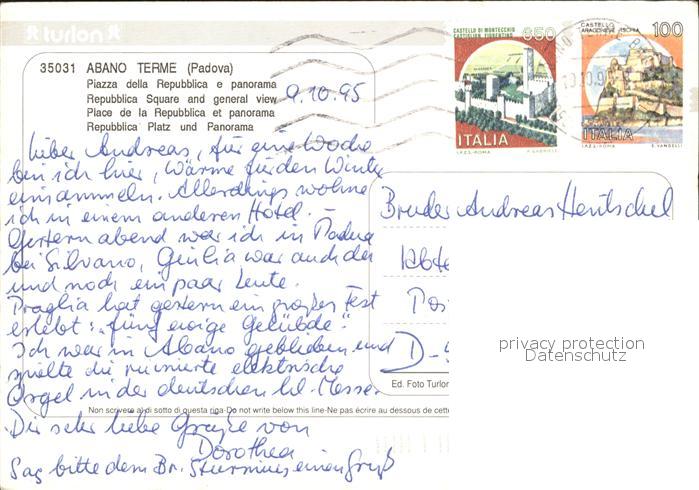 turlon
35031 ABANO TERME (Padova)
Piazza della Repubblica e panorama
Repubblica Square and general view
Place de la Repubblica et panorama
Repubblica Platz und Panorama
CASTELLO DI MONTECCHIO
CASTIGLION FIORENTINO
650
ITALIA
I.P.Z.S.-ROMA
CASTELLO
ARAGONESE - ISCHIA
100
ITALIA
I.P.Z.S.-ROMA E. VANGELLI
9.10.95
Lieber Andreas, für eine Woche
bin ich hier, Wärme für den Winter
einsammeln. Allerdings wohne
ich in einem anderen Hotel. –
Gestern abend war ich in Padua
bei Silvano, Giulia war auch da
und noch ein paar Leute.
Praglia hat gestern ein großes Fest
erlebt: "fünf ewige Gelübde".
Ich war in Abano geblieben und
spielte die ruinierte elektrische
Orgel in der deutschen hl. Messe.
Dir sehr liebe Grüße von
Dorothea
Sag bitte dem Br. Sturmius einen Gruß
Bruder Andreas Hentschel
Abte
Pos
D-
privacy protection
Datenschutz
Ed. Foto Turlon
Non scrivere al di sotto di questa riga-Do not write below this line-Ne pas écrire au dessous de cette